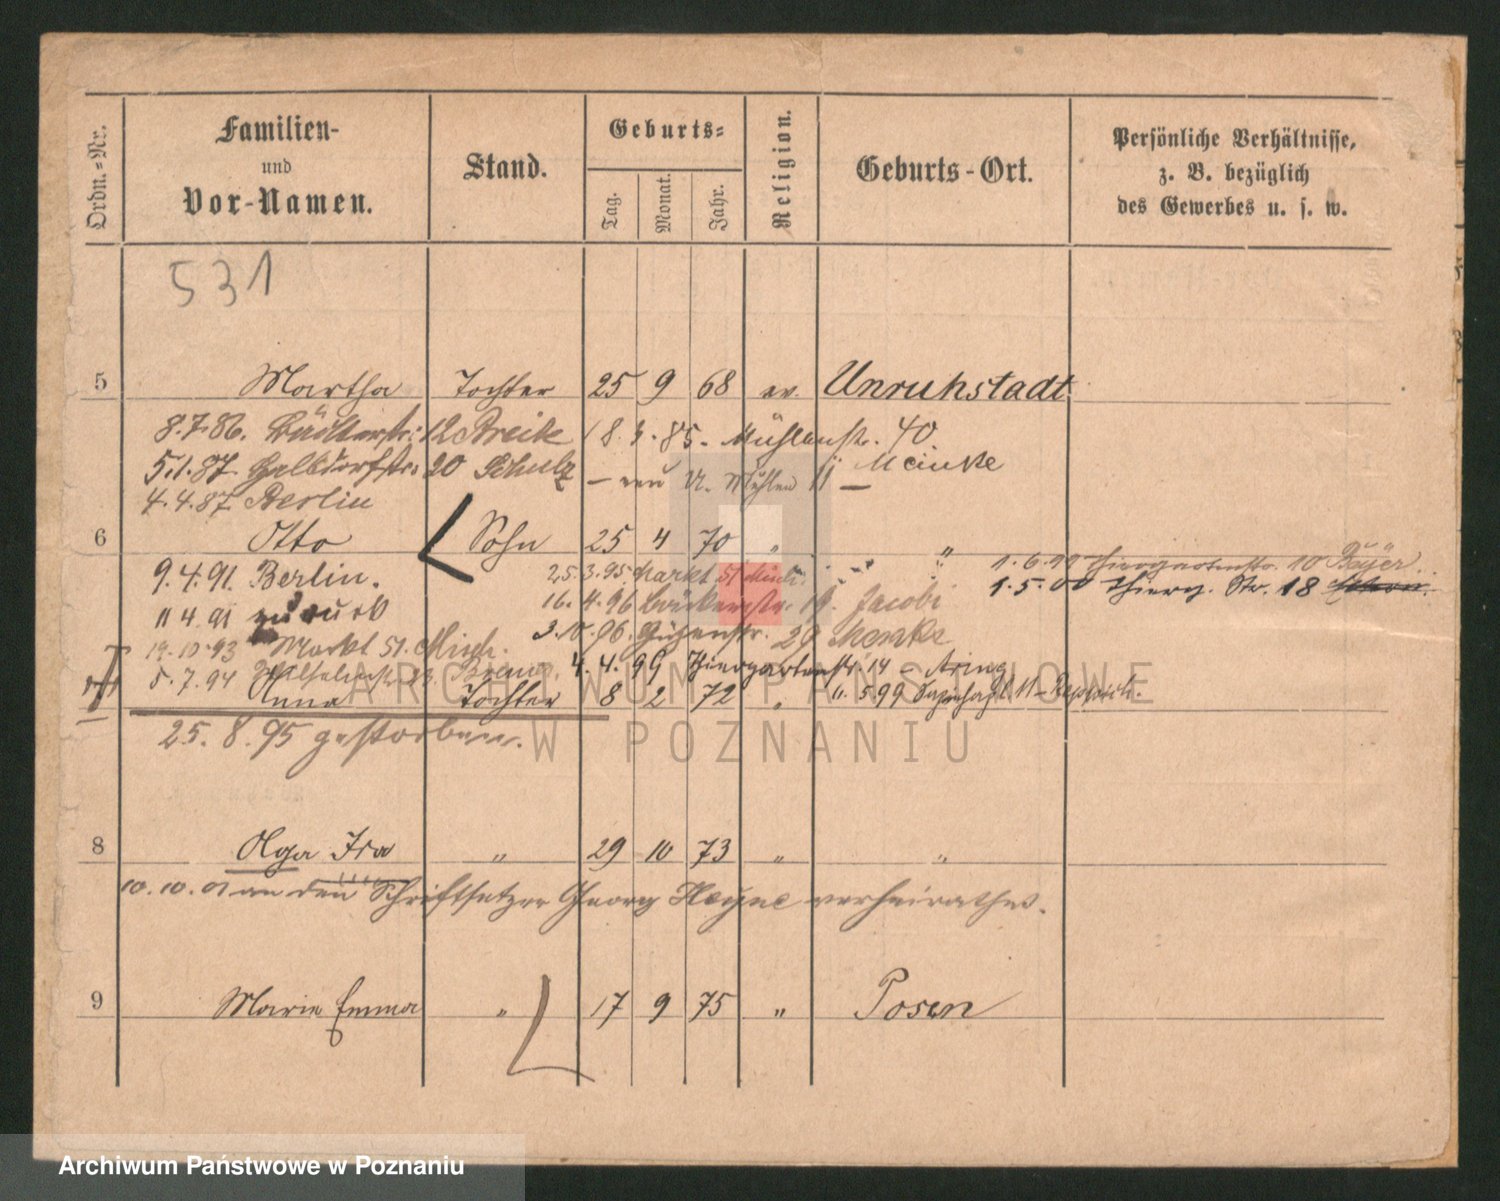 Ordn.-Nr.
Familien-
und
Vor-Namen.
Stand.
Geburts-
Tag.
Monat.
Jahr.
Religion.
Geburts-Ort.
Persönliche Verhältnisse,
z. B. bezüglich
des Gewerbes u. s. w.
531
5 Martha Tochter 25 9 68 ev. Unruhstadt
8.7.86. 12 18. 3. 85. Mühlenstr. 40.
5.1.87. Halbdorfstr. 20 Schulz – Mühlen 11 – Meinke
4.4.87. Berlin
6 Otto Sohn 25 4 70 " "
1.6.99 Thiergartenstr. 10 Bayer.
9.4.91. Berlin. 25.3.95. Markt 51 Misch.
1.5.00 Thierg. Str. 18
11 4.91 zurück 16.4.96 19. Jacobi
3.10.96. 29 Menke
19.10.93 Markt 51. Misch.
5.7.94 4.4.99 Thiergartenstr. 14
Anna Tochter 8 2 72 " 11.5.99
25.8.95 gestorben.
8 Olga Ida " 29 10 73 " "
10.10.01 an den Schriftsetzer Georg Heyne verheirathet.
9 Marie Emma " 17 9 75 " Posen
ARCHIWUM PAŃSTWOWE
W POZNANIU
Archiwum Państwowe w Poznaniu